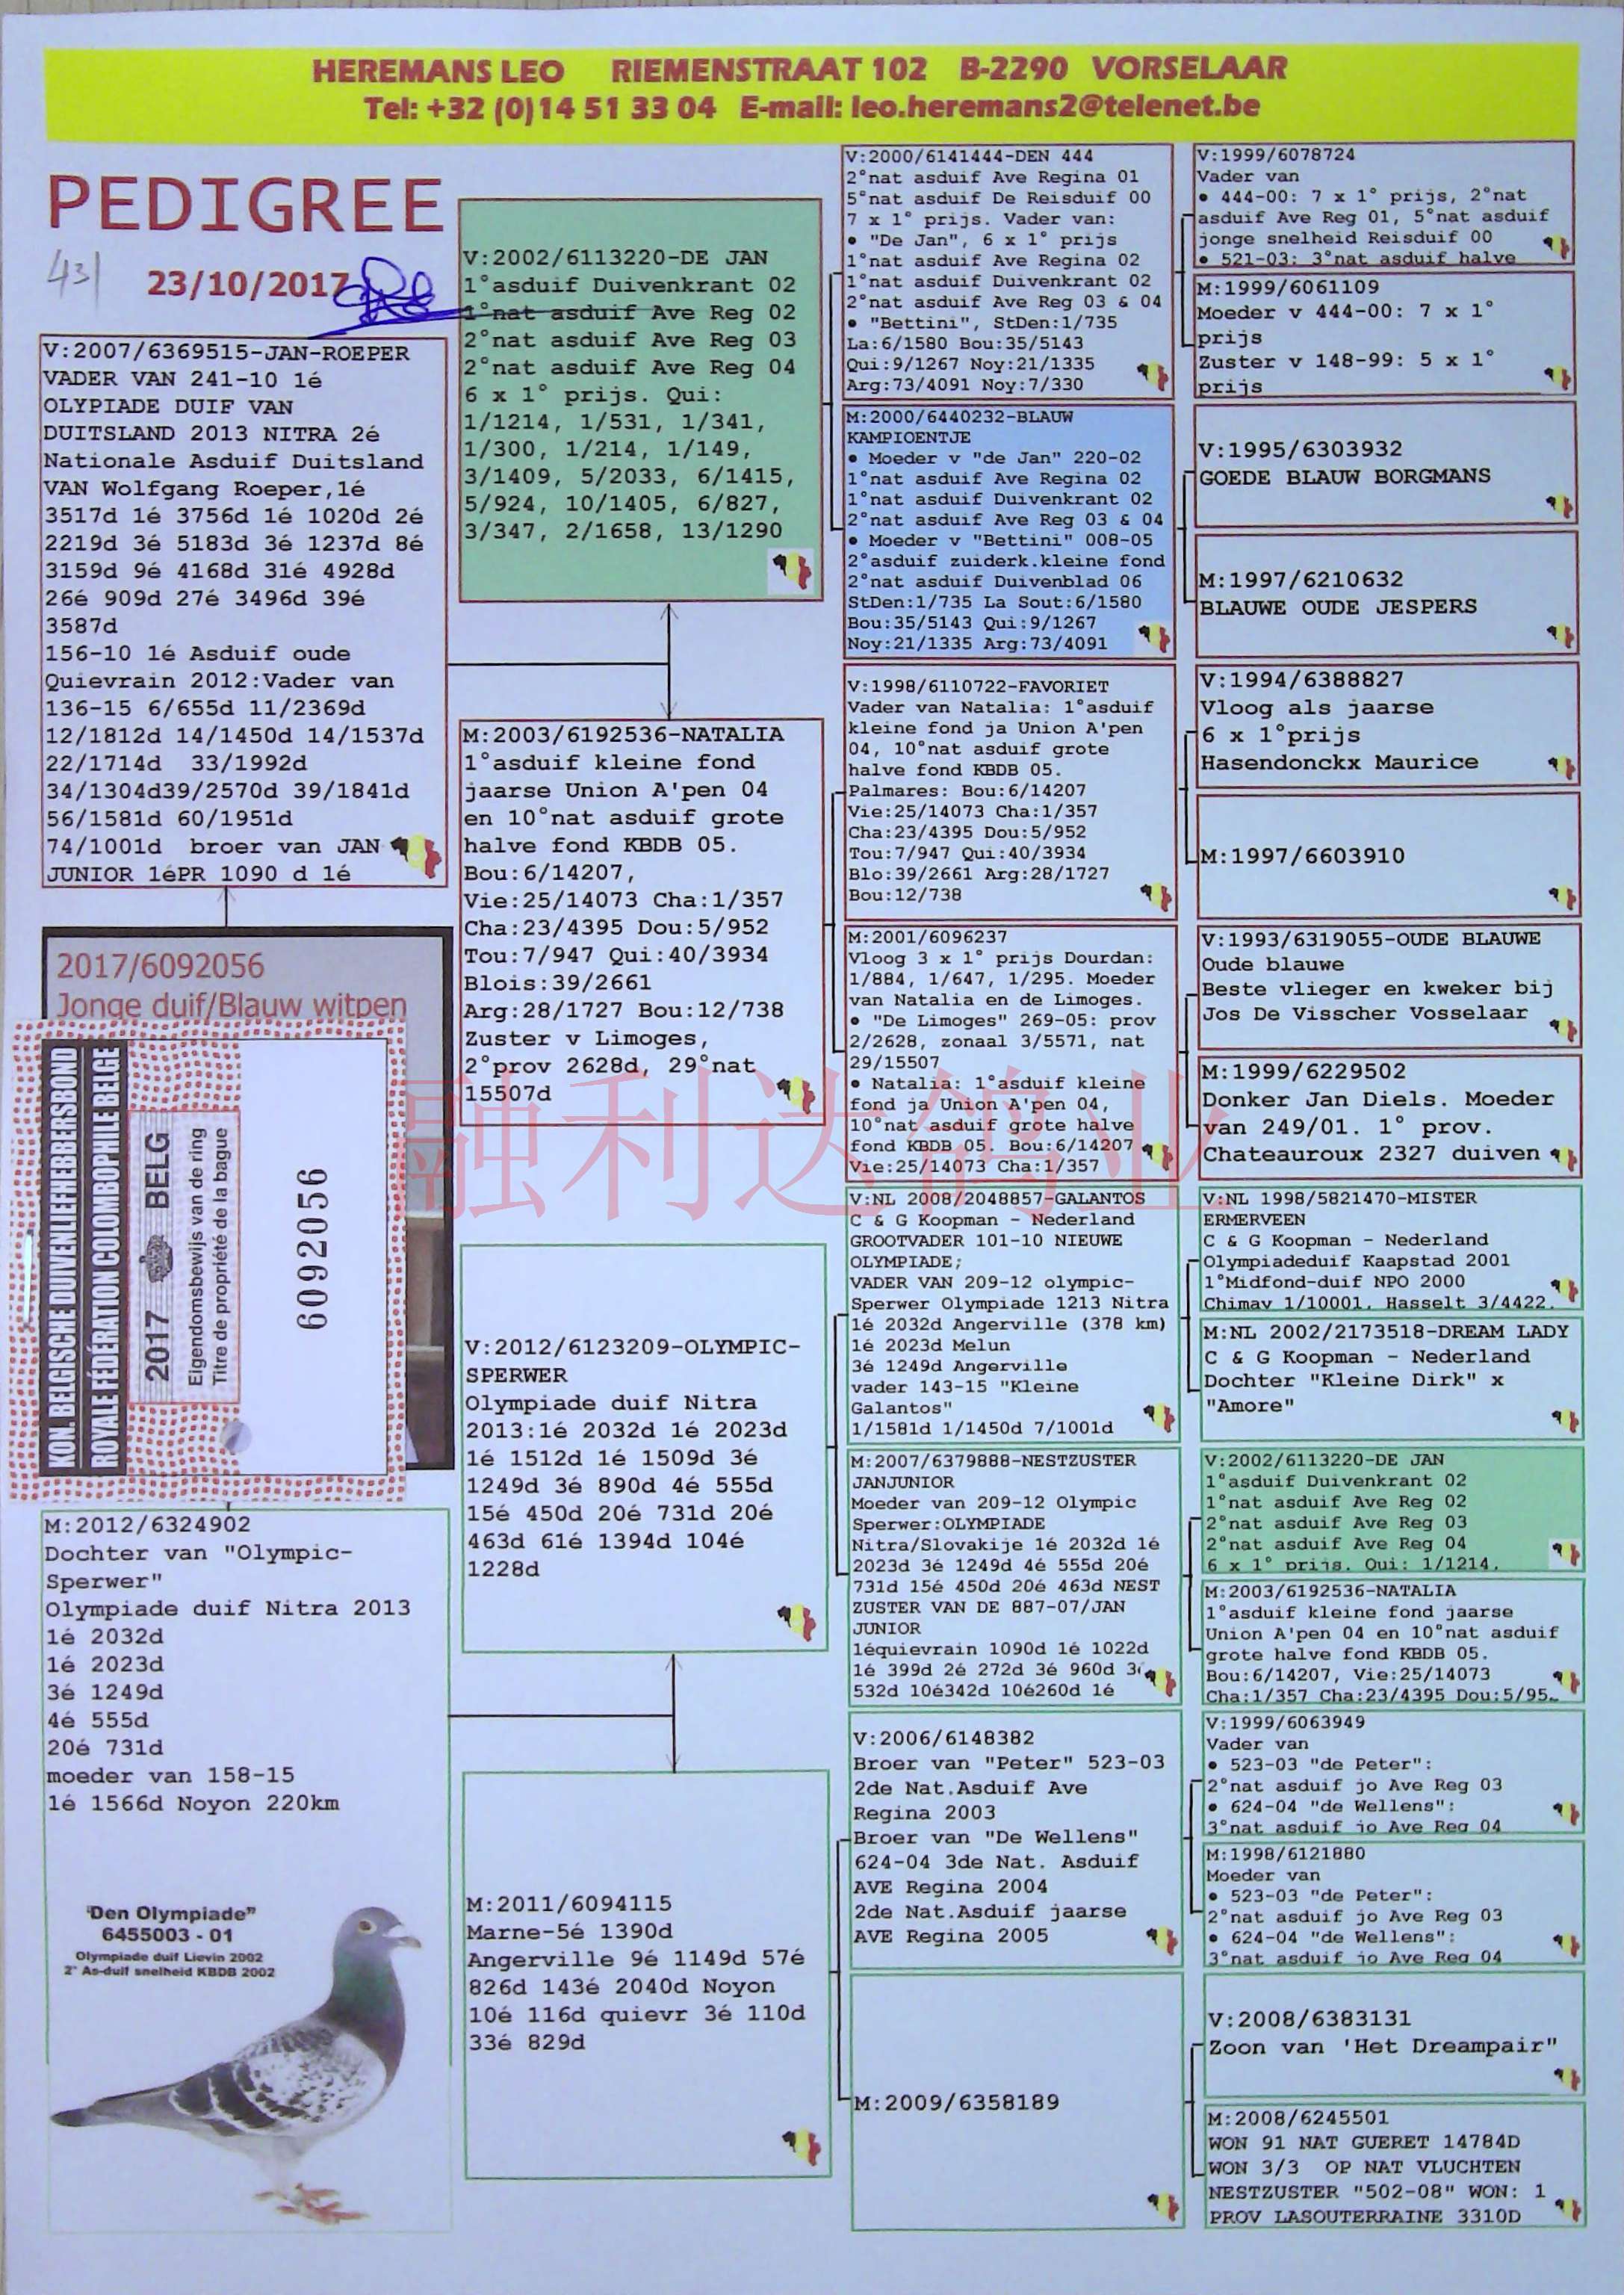 HEREMANS LEO RIEMENSTRAAT 102 B-2290 VORSELAAR
Tel: +32 (0)14 51 33 04 E-mail: leo.heremans2@telenet.be
PEDIGREE
431
23/10/2017
V:2007/6369515-JAN-ROEPER
VADER VAN 241-10 1é
OLYPIADE DUIF VAN
DUITSLAND 2013 NITRA 2é
Nationale Asduif Duitsland
VAN Wolfgang Roeper,1é
3517d 1é 3756d 1é 1020d 2é
2219d 3é 5183d 3é 1237d 8é
3159d 9é 4168d 31é 4928d
26é 909d 27é 3496d 39é
3587d
156-10 1é Asduif oude
Quievrain 2012:Vader van
136-15 6/655d 11/2369d
12/1812d 14/1450d 14/1537d
22/1714d 33/1992d
34/1304d39/2570d 39/1841d
56/1581d 60/1951d
74/1001d broer van JAN
JUNIOR 1éPR 1090 d 1é
2017/6092056
Jonge duif/Blauw witpen
KON. BELGISCHE DUIVENLIEFHEBBERSBOND
ROYALE FÉDÉRATION COLOMBOPHILE BELGE
2017 BELG
Eigendomsbewijs van de ring
Titre de propriété de la bague
6092056
M:2012/6324902
Dochter van "Olympic-
Sperwer"
Olympiade duif Nitra 2013
1é 2032d
1é 2023d
3é 1249d
4é 555d
20é 731d
moeder van 158-15
1é 1566d Noyon 220km
"Den Olympiade"
6455003 - 01
Olympiade duif Lievin 2002
2° As-duif snelheid KBDB 2002
V:2002/6113220-DE JAN
1°asduif Duivenkrant 02
1°nat asduif Ave Reg 02
2°nat asduif Ave Reg 03
2°nat asduif Ave Reg 04
6 x 1° prijs. Qui:
1/1214, 1/531, 1/341,
1/300, 1/214, 1/149,
3/1409, 5/2033, 6/1415,
5/924, 10/1405, 6/827,
3/347, 2/1658, 13/1290
M:2003/6192536-NATALIA
1°asduif kleine fond
jaarse Union A'pen 04
en 10°nat asduif grote
halve fond KBDB 05.
Bou:6/14207,
Vie:25/14073 Cha:1/357
Cha:23/4395 Dou:5/952
Tou:7/947 Qui:40/3934
Blois:39/2661
Arg:28/1727 Bou:12/738
Zuster v Limoges,
2°prov 2628d, 29°nat
15507d
V:2012/6123209-OLYMPIC-
SPERWER
Olympiade duif Nitra
2013:1é 2032d 1é 2023d
1é 1512d 1é 1509d 3é
1249d 3é 890d 4é 555d
15é 450d 20é 731d 20é
463d 61é 1394d 104é
1228d
M:2011/6094115
Marne-5é 1390d
Angerville 9é 1149d 57é
826d 143é 2040d Noyon
10é 116d quievr 3é 110d
33é 829d
V:2000/6141444-DEN 444
2°nat asduif Ave Regina 01
5°nat asduif De Reisduif 00
7 x 1° prijs. Vader van:
• "De Jan", 6 x 1° prijs
1°nat asduif Ave Regina 02
1°nat asduif Duivenkrant 02
2°nat asduif Ave Reg 03 & 04
• "Bettini", StDen:1/735
La:6/1580 Bou:35/5143
Qui:9/1267 Noy:21/1335
Arg:73/4091 Noy:7/330
M:2000/6440232-BLAUW
KAMPIOENTJE
• Moeder v "de Jan" 220-02
1°nat asduif Ave Regina 02
1°nat asduif Duivenkrant 02
2°nat asduif Ave Reg 03 & 04
• Moeder v "Bettini" 008-05
2°asduif zuiderk.kleine fond
2°nat asduif Duivenblad 06
StDen:1/735 La Sout:6/1580
Bou:35/5143 Qui:9/1267
Noy:21/1335 Arg:73/4091
V:1998/6110722-FAVORIET
Vader van Natalia: 1°asduif
kleine fond ja Union A'pen
04, 10°nat asduif grote
halve fond KBDB 05.
Palmares: Bou:6/14207
Vie:25/14073 Cha:1/357
Cha:23/4395 Dou:5/952
Tou:7/947 Qui:40/3934
Blo:39/2661 Arg:28/1727
Bou:12/738
M:2001/6096237
Vloog 3 x 1° prijs Dourdan:
1/884, 1/647, 1/295. Moeder
van Natalia en de Limoges.
• "De Limoges" 269-05: prov
2/2628, zonaal 3/5571, nat
29/15507
• Natalia: 1°asduif kleine
fond ja Union A'pen 04,
10°nat asduif grote halve
fond KBDB 05. Bou:6/14207
Vie:25/14073 Cha:1/357
融利达鸽业
V:NL 2008/2048857-GALANTOS
C & G Koopman - Nederland
GROOTVADER 101-10 NIEUWE
OLYMPIADE;
VADER VAN 209-12 olympic-
Sperwer Olympiade 1213 Nitra
1é 2032d Angerville (378 km)
1é 2023d Melun
3é 1249d Angerville
vader 143-15 "Kleine
Galantos"
1/1581d 1/1450d 7/1001d
M:2007/6379888-NESTZUSTER
JANJUNIOR
Moeder van 209-12 Olympic
Sperwer:OLYMPIADE
Nitra/Slovakije 1é 2032d 1é
2023d 3é 1249d 4é 555d 20é
731d 15é 450d 20é 463d NEST
ZUSTER VAN DE 887-07/JAN
JUNIOR
1équievrain 1090d 1é 1022d
1é 399d 2é 272d 3é 960d 3é
532d 10é342d 10é260d 1é
V:2006/6148382
Broer van "Peter" 523-03
2de Nat.Asduif Ave
Regina 2003
Broer van "De Wellens"
624-04 3de Nat. Asduif
AVE Regina 2004
2de Nat.Asduif jaarse
AVE Regina 2005
M:2009/6358189
V:1999/6078724
Vader van
• 444-00: 7 x 1° prijs, 2°nat
asduif Ave Reg 01, 5°nat asduif
jonge snelheid Reisduif 00
• 521-03: 3°nat asduif halve
M:1999/6061109
Moeder v 444-00: 7 x 1°
prijs
Zuster v 148-99: 5 x 1°
prijs
V:1995/6303932
GOEDE BLAUW BORGMANS
M:1997/6210632
BLAUWE OUDE JESPERS
V:1994/6388827
Vloog als jaarse
6 x 1°prijs
Hasendonckx Maurice
M:1997/6603910
V:1993/6319055-OUDE BLAUWE
Oude blauwe
Beste vlieger en kweker bij
Jos De Visscher Vosselaar
M:1999/6229502
Donker Jan Diels. Moeder
van 249/01. 1° prov.
Chateauroux 2327 duiven
V:NL 1998/5821470-MISTER
ERMERVEEN
C & G Koopman - Nederland
Olympiadeduif Kaapstad 2001
1°Midfond-duif NPO 2000
Chimay 1/10001, Hasselt 3/4422,
M:NL 2002/2173518-DREAM LADY
C & G Koopman - Nederland
Dochter "Kleine Dirk" x
"Amore"
V:2002/6113220-DE JAN
1°asduif Duivenkrant 02
1°nat asduif Ave Reg 02
2°nat asduif Ave Reg 03
2°nat asduif Ave Reg 04
6 x 1° prijs. Qui: 1/1214,
M:2003/6192536-NATALIA
1°asduif kleine fond jaarse
Union A'pen 04 en 10°nat asduif
grote halve fond KBDB 05.
Bou:6/14207, Vie:25/14073
Cha:1/357 Cha:23/4395 Dou:5/95
V:1999/6063949
Vader van
• 523-03 "de Peter":
2°nat asduif jo Ave Reg 03
• 624-04 "de Wellens":
3°nat asduif jo Ave Reg 04
M:1998/6121880
Moeder van
• 523-03 "de Peter":
2°nat asduif jo Ave Reg 03
• 624-04 "de Wellens":
3°nat asduif jo Ave Reg 04
V:2008/6383131
Zoon van 'Het Dreampair"
M:2008/6245501
WON 91 NAT GUERET 14784D
WON 3/3 OP NAT VLUCHTEN
NESTZUSTER "502-08" WON: 1
PROV LASOUTERRAINE 3310D